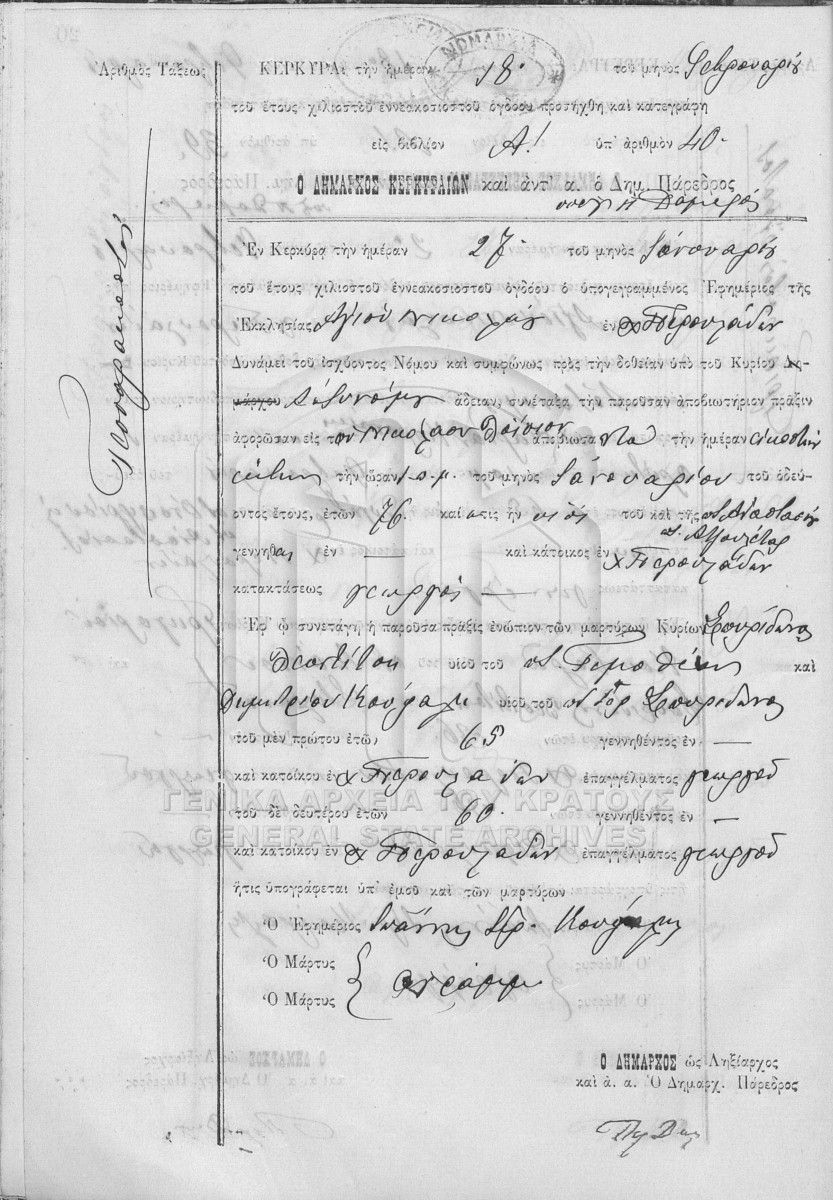 Ἀριθμὸς Τάξεως
ΚΕΡΚΥΡΑ: τὴν ἡμέραν 18. τοῦ μηνὸς Φεβρουαρίου
τοῦ ἔτους χιλιοστοῦ ἐννεακοσιοστοῦ ὀγδόου προσήχθη καὶ κατεγράφη
εἰς βιβλίον Α! ὑπ' ἀριθμὸν 40.
Ὁ ΔΗΜΑΡΧΟΣ ΚΕΡΚΥΡΑΙΩΝ καὶ ἀντ' α. ὁ Δημ. Πάρεδρος
Ἐν Κερκύρᾳ τὴν ἡμέραν 27. τοῦ μηνὸς Ἰανουαρίου
τοῦ ἔτους χιλιοστοῦ ἐννεακοσιοστοῦ ὀγδόου ὁ ὑπογεγραμμένος Ἐφημέριος τῆς
Ἐκκλησίας Ἁγίου Νικολάου ἐν χ Περουλάδων
Δυνάμει τοῦ ἰσχύοντος Νόμου καὶ συμφώνως πρὸς τὴν δοθεῖσαν ὑπὸ τοῦ Κυρίου Δη-
μάρχου Ἀστυνόμου ἄδειαν, συνέταξα τὴν παροῦσαν ἀποβιωτήριον πρᾶξιν
ἀφορῶσαν εἰς τὸν Νικόλαον ἀποβιώσαντα τὴν ἡμέραν εἰκοστὴν
ἕκτην τὴν ὥραν π.μ. τοῦ μηνὸς Ἰανουαρίου τοῦ ὁδεύ-
οντος ἔτους, ἐτῶν 76. καὶ ὅστις ἦν υἱὸς τοῦ καὶ τῆς π. Ἀναστασίου
γεννηθεὶς ἐν — καὶ κάτοικος ἐν χ Περουλάδων
κατακτάσεως γεωργὸς —
Ἐφ' ᾧ συνετάγη ἡ παροῦσα πρᾶξις ἐνώπιον τῶν μαρτύρων Κυρίων Σπυρίδωνος
υἱοῦ τοῦ π. Τιμοθέου καὶ
Δημητρίου Κουφάκη υἱοῦ τοῦ Σπυρίδωνος
τοῦ μὲν πρώτου ἐτῶν 65 γεννηθέντος ἐν —
καὶ κατοίκου ἐν χ Περουλάδων ἐπαγγέλματος γεωργοῦ
τοῦ δὲ δευτέρου ἐτῶν 60. γεννηθέντος ἐν —
καὶ κατοίκου ἐν χ Περουλάδων ἐπαγγέλματος γεωργοῦ
ἥτις ὑπογράφεται ὑπ' ἐμοῦ καὶ τῶν μαρτύρων
Ὁ Ἐφημέριος Ἰωάννης
Ὁ Μάρτυς
Ὁ Μάρτυς
ἀγράμματοι
Ὁ ΔΗΜΑΡΧΟΣ ὡς Ληξίαρχος
καὶ ἀ. α. Ὁ Δημαρχ. Πάρεδρος
ΓΕΝΙΚΑ ΑΡΧΕΙΑ ΤΟΥ ΚΡΑΤΟΥΣ
GENERAL STATE ARCHIVES